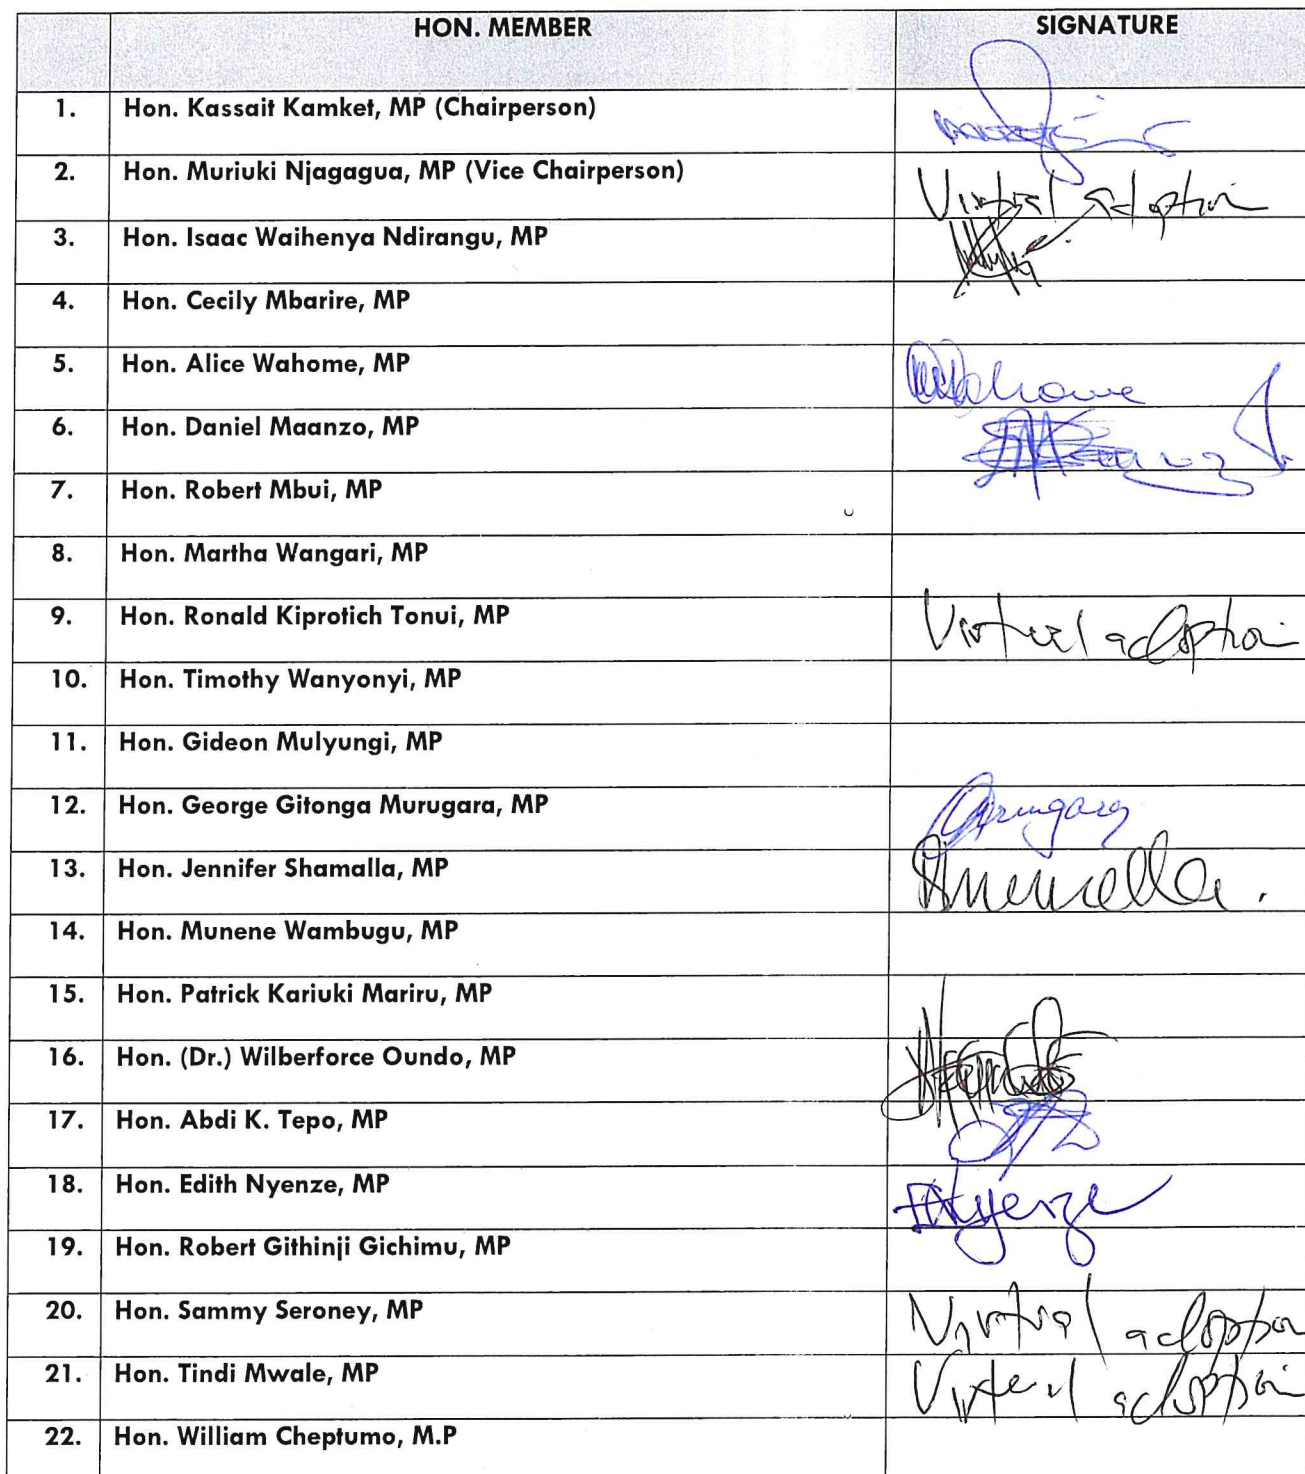 HON. MEMBER SIGNATURE
1. Hon. Kassait Kamket, MP (Chairperson)
2. Hon. Muriuki Njagagua, MP (Vice Chairperson) Virtual adoption
3. Hon. Isaac Waihenya Ndirangu, MP
4. Hon. Cecily Mbarire, MP
5. Hon. Alice Wahome, MP Wahome
6. Hon. Daniel Maanzo, MP
7. Hon. Robert Mbui, MP
8. Hon. Martha Wangari, MP
9. Hon. Ronald Kiprotich Tonui, MP Virtual adoption
10. Hon. Timothy Wanyonyi, MP
11. Hon. Gideon Mulyungi, MP
12. Hon. George Gitonga Murugara, MP
13. Hon. Jennifer Shamalla, MP
14. Hon. Munene Wambugu, MP
15. Hon. Patrick Kariuki Mariru, MP
16. Hon. (Dr.) Wilberforce Oundo, MP
17. Hon. Abdi K. Tepo, MP
18. Hon. Edith Nyenze, MP ENyenze
19. Hon. Robert Githinji Gichimu, MP
20. Hon. Sammy Seroney, MP Virtual adoption
21. Hon. Tindi Mwale, MP Virtual adoption
22. Hon. William Cheptumo, M.P